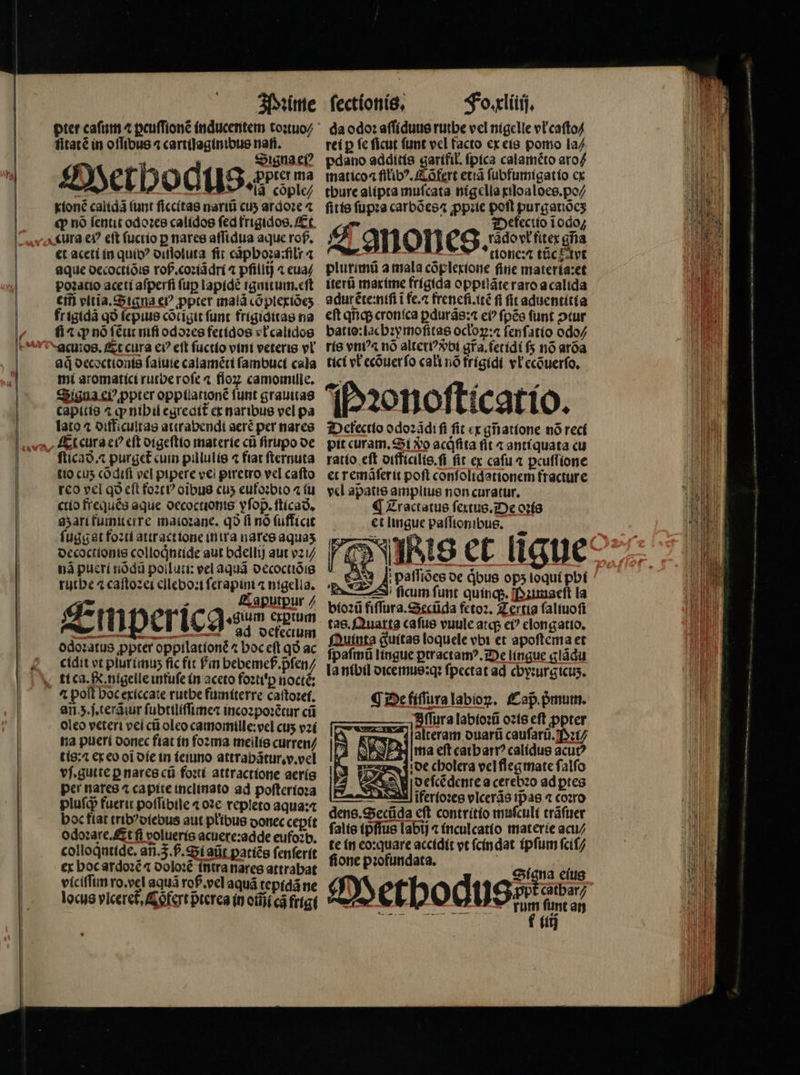 Prime sectionis, Fo.xliiij.
pter casum ⁊ ꝑcussionẽ inducentem tortuo⸗
sitatẽ in ossibus ⁊ cartilaginibus nasi.
Signa ei⁹
Methodus. ꝓpter ma
lã cõple⸗
xionẽ calidã sunt siccitas nariũ cuꝫ ardore ⁊
ꝙ nõ sentit odores calidos sed frigidos. Et
cura ei⁹ est suctio ꝑ nares assidua aque ros.
et aceti in quib⁹ dissoluta sit cãphora: silr ⁊
aque decoctiõis ros. coriãdri ⁊ psillij ⁊ eua⸗
poratio aceti aspersi sup lapidẽ ignitum. est
em̃ vltia. Signa ei⁹ ꝓpter malã cõplexiões
frigidã qđ sepius cõtigit sunt frigiditas na
si ⁊ ꝙ nõ sẽtit nisi odores fetidos vel calidos
acutos. Et cura ei⁹ est suctio vini veteris vel
aq̃ decoctionis saluie calamẽti sambuci cala
mi aromatici ruthe rose ⁊ floꝝ camomille.
Signa ei⁹ ꝓpter oppilationẽ sunt grauitas
capitis ⁊ ꝙ nihil egredit̃ ex naribus vel pa
lato ⁊ difficultas attrahendi aerẽ per nares
Et cura ei⁹ est digestio materie cũ sirupo de
sticad. ⁊ purget̃ cum pillulis ⁊ fiat sternuta
tio cuꝫ cõdisi vel pipere vel piretro vel casto
reo vel qđ est forti⁹ oibus cuꝫ euforbio ⁊ su
ctio frequẽs aque decoctionis ysop. sticad.
asari fumiterre maiorane. qđ si nõ sufficit
suggat forti attractione intra nares aquaꝫ
decoctionis colloq̃ntide aut bdellij aut vri⸗
nã pueri nõdũ polluti: vel aquã decoctiõis
ruthe ⁊ castorei ellebori serapini ⁊ nigella.
Caputpur⸗
Emperica. gium exptum
ad defectum
odoratus ꝓpter oppilationẽ ⁊ hoc est qđ ac
cidit vt plurimuꝫ sic fit
ti ca. R. nigelle infuse in aceto forti ꝑ noctẽ:
⁊ post hoc exiccate ruthe fumiterre castorei.
oleo veteri vel cũ oleo camomille: vel cuꝫ vri
na pueri donec fiat in forma mellis curren⸗
tis: ⁊ ex eo oi die in ieiuno attrahãtur. v. vel
vj. gutte ꝑ nares cũ forti attractione aeris
per nares ⁊ capite inclinato ad posteriora
plusq̃ fuerit possibile ⁊ ore repleto aqua: ⁊
hoc fiat trib⁹ diebus aut plibus donec cepit
odorare. Et si volueris acuere: adde euforb.
colloq̃ntide. Si aũt patiẽs senserit
ex hoc ardorẽ ⁊ dolorẽ intra nares attrahat
vicissim ro. vel aquã ros. vel aquã tepidã ne
locus vlceret̃. Cõfert p̃terea in oĩi cã frigi
da odor assiduus ruthe vel nigelle vel casto⸗
rei ꝑ se sicut sunt vel facto ex eis pomo la⸗
pdano additis garifil. spica calamẽto aro⸗
matico ⁊ silib⁹. Cõfert etiã subfumigatio ex
thure alipta muscata nigella xiloaloes. po⸗
sitis supra carbões ⁊ ꝓprie post purgatiões
Defectio ĩ odo⸗
Canones. rãdo vel sit ex gña
tione: ⁊ tũc est vt
plurimũ a mala cõplexione sine materia: et
iterũ maxime frigida oppilãte raro a calida
adurẽte: nisi ĩ fe. ⁊ frenesi. itẽ si sit aduentitia
est q̃nqꝫ cronica ꝑdurãs: ⁊ ei⁹ spẽs sunt ꝓtur
batio: lachrymositas ocloꝝ: ⁊ sensatio odo⸗
ris vni⁹ ⁊ nõ alteri⁹ vbi gr̃a. fetidi sꝫ nõ arõa
tici vel ecõuerso cali nõ frigidi vel ecõuerso.
Pronosticatio.
Defectio odorãdi si sit ex gñatione nõ reci
pit curam. Si vo acq̃sita sit ⁊ antiquata cu
ratio est difficilis. si sit ex casu ⁊ ꝑcussione
et remãserit post consolidationem fracture
vel apatis amplius non curatur.
¶ Tractatus sextus. De oris
et lingue passionibus.
ORis et ligue
passiões de q̃bus opꝫ loqui pñi
ficum sunt quinqꝫ. Prima est la
biorũ fissura. Secũda fetor. Tertia saliuosi
tas. Quarta casus vuule atqꝫ ei⁹ elongatio.
Quinta g̃uitas loquele vbi et apostema et
spasmũ lingue ꝑtractam⁹. De lingue glãdu
la nihil dicemus: qꝫ spectat ad chyrurgicuꝫ.
¶ De fissura labioꝝ. Cap. p̃mum.
FIssura labiorũ oris est ꝓpter
alteram duarũ causarũ. Pri⸗
ma est cathars⁹ calidus acut⁹
de cholera vel flegmate falso
descẽdente a cerebro ad ptes
ĩferiores vlcerãs ip̃as ⁊ corro
dens. Secũda est contritio musculi trãsuer
salis ipsius labij ⁊ inculcatio materie acu⸗
te in eo: quare accidit vt scindat ipsum scis⸗
sione profundata.
Signa eius
Methodus ꝓpt̃ cathar⸗
rum sunt an
f iiij